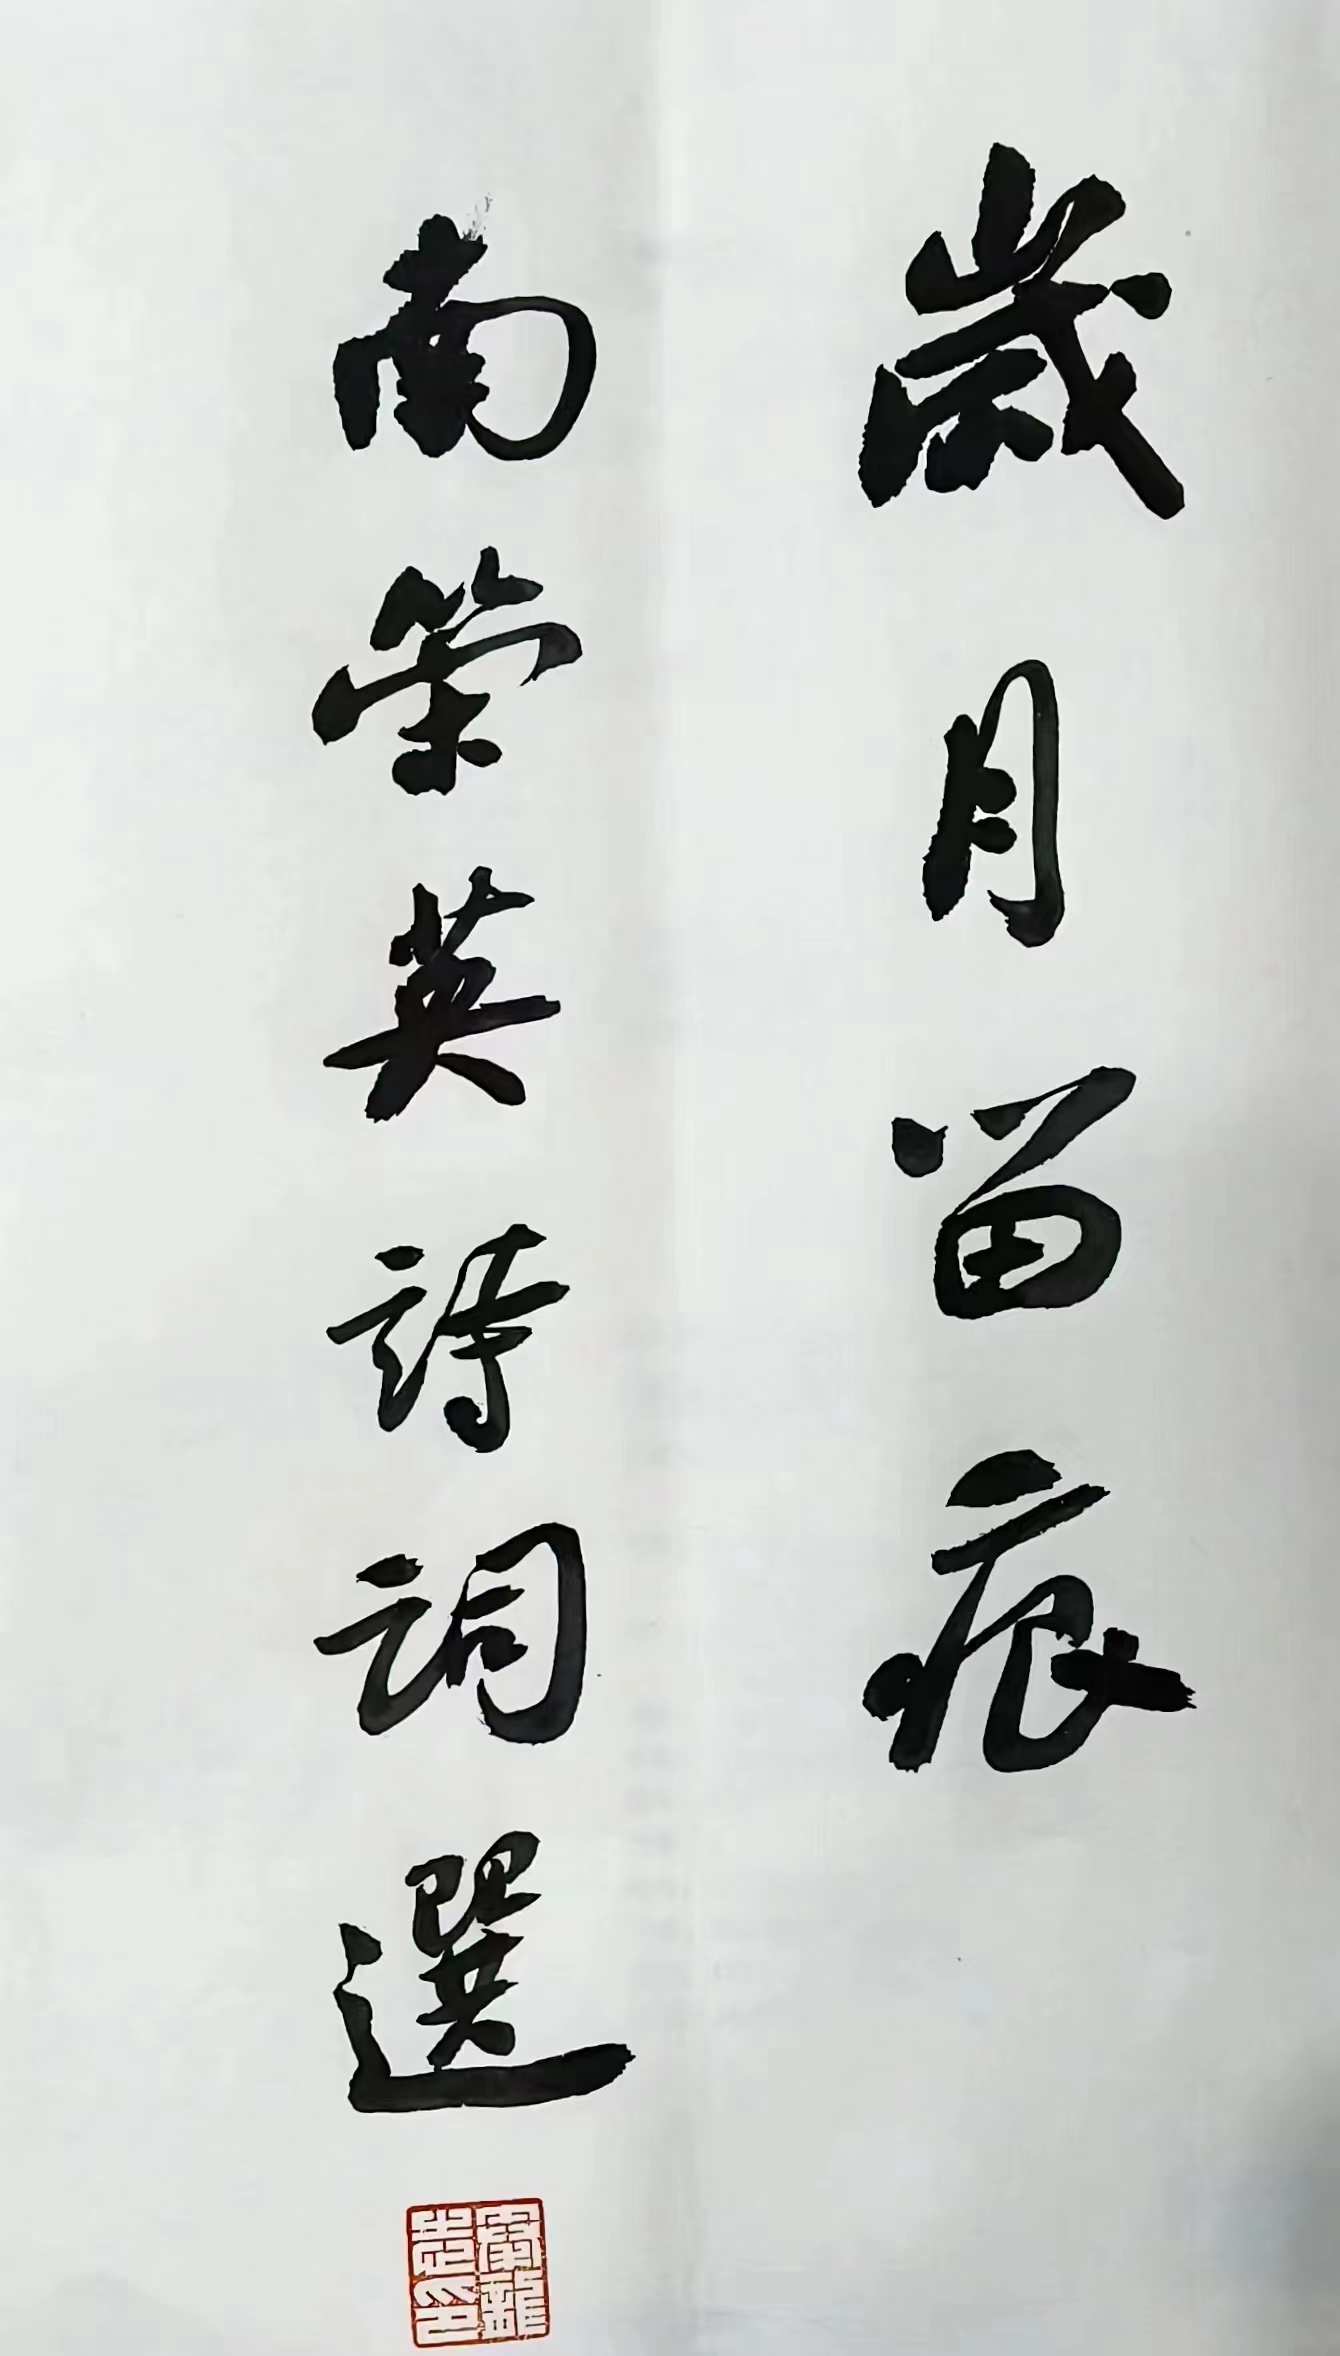 歲月留痕
南榮英詩詞選